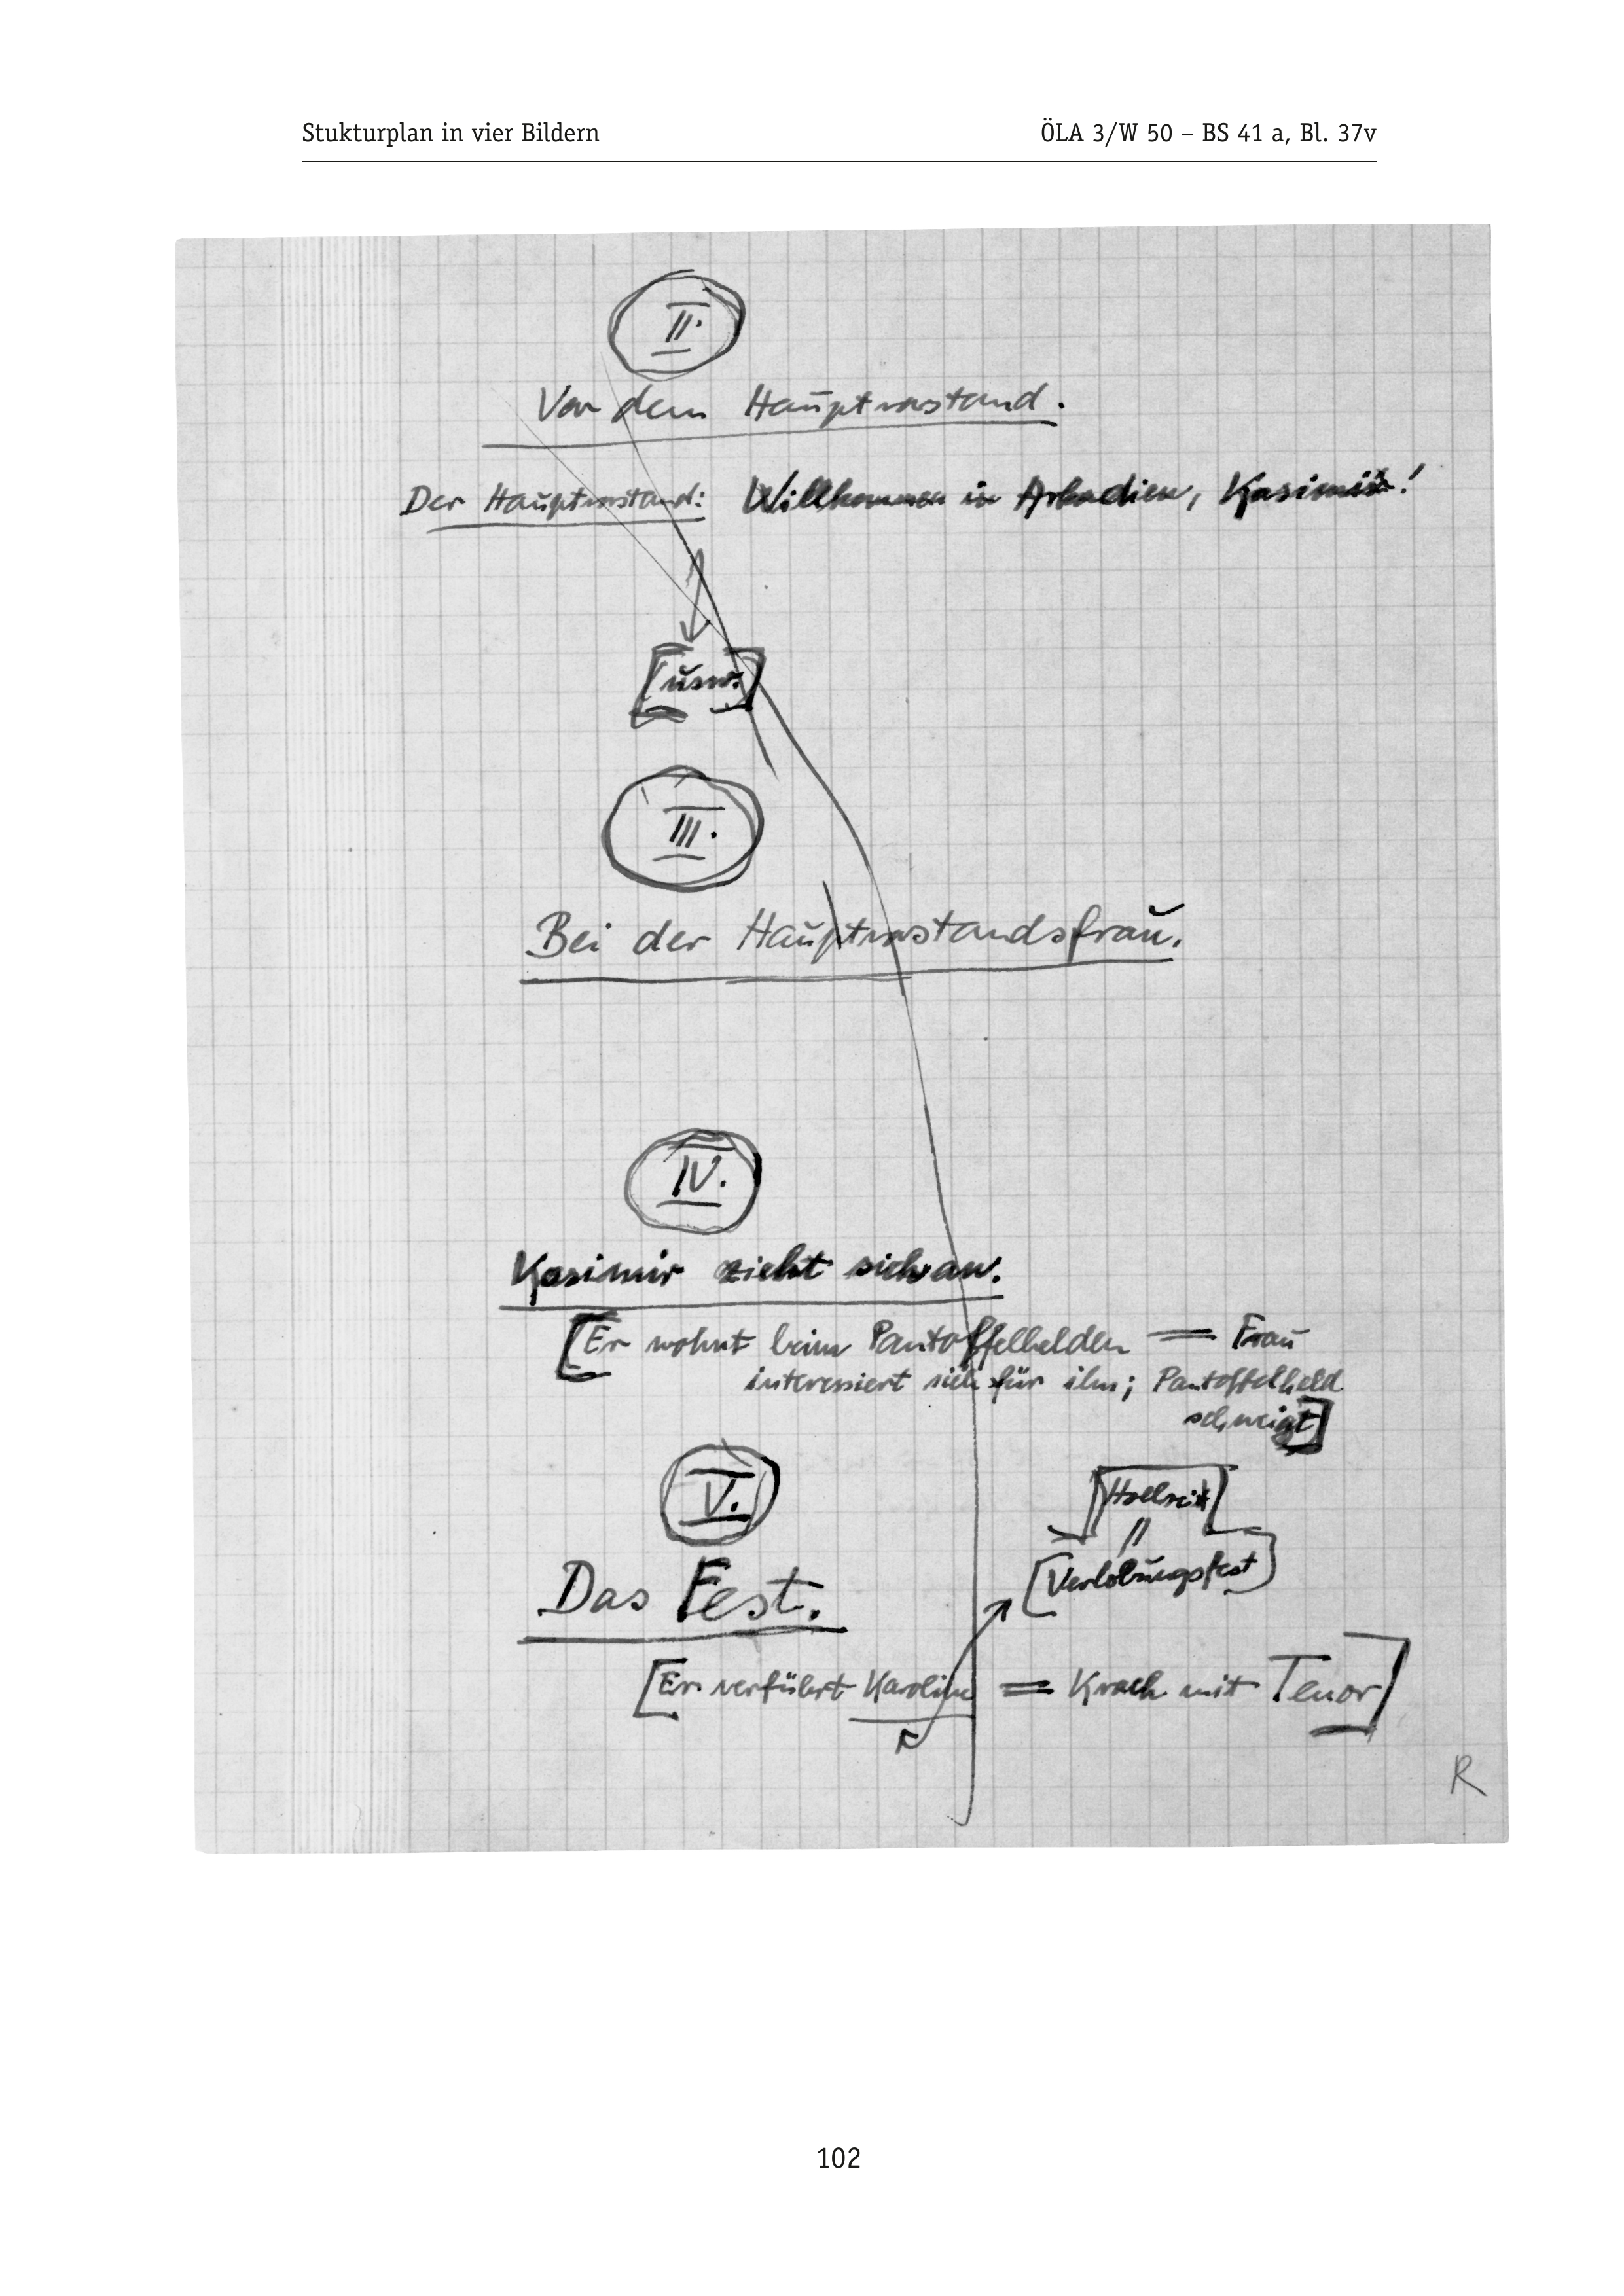 Stukturplan in vier Bildern
ÖLA 3/W 50 – BS 41 a, Bl. 37v
II.
Vor dem Hauptvorstand.
Der Hauptvorstand: Willkommen in Arkadien, Kasimir!
[usw.]
III.
Bei der Hauptvorstandsfrau.
IV.
Kasimir zieht sich an.
[Er wohnt beim Pantoffelhelden = Frau
interessiert sich für ihn; Pantoffelheld
schweigt]
V.
[Hochzeit]
=
Das Fest.
[Verlobungsfest]
[Er verführt Karoline = Krach mit Tenor]
R
102